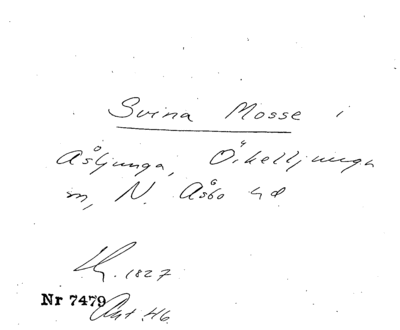 Svina Mosse i
Åsljunga, Örkelljunga
m, N. Åsbo hd
1827
Nr 7479
Akt 46